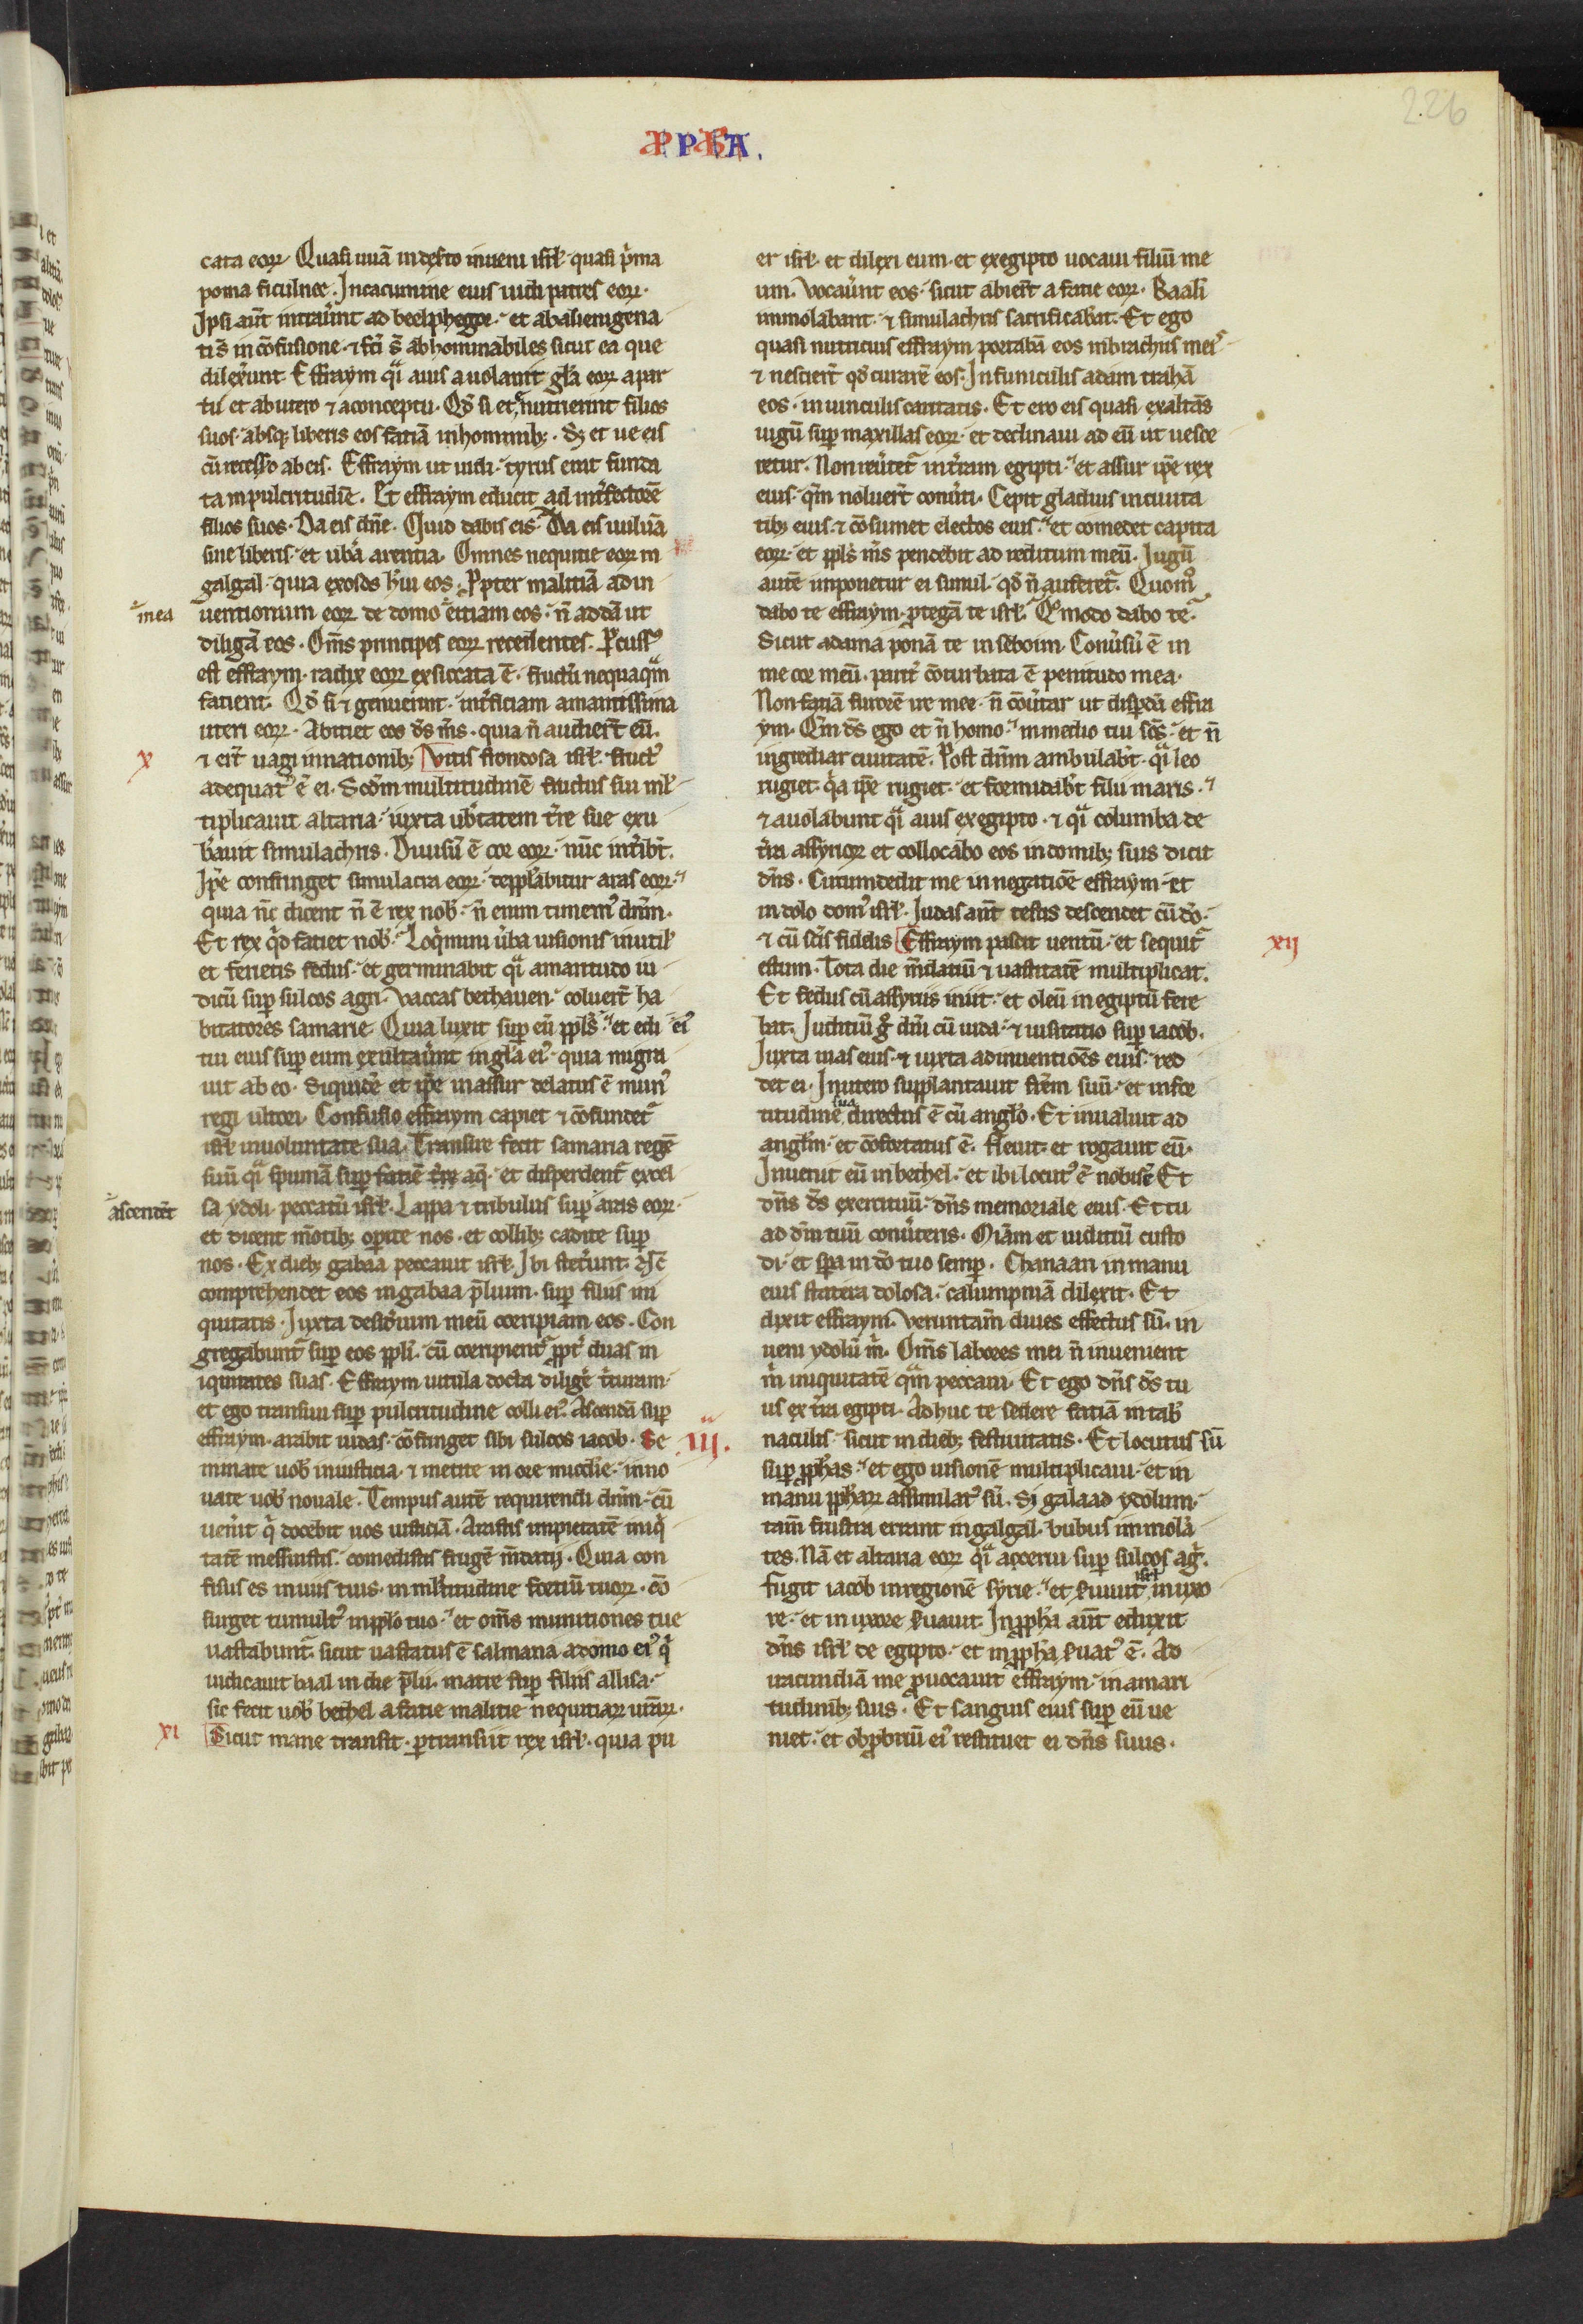 226
PPHA.
cata eoꝝ. Quasi uuā in deserto inueni isrl̄. quasi p̄ma
poma ficulnee. In cacumine eius uidi patres eoꝝ.
Ipsi aūt intrauer̄unt ad beelphegor. et abalienigena
ti s̄ in cōfusione. ⁊ fc̄i s̄ abhominabiles sicut ea que
dilexer̄unt. Effraym q̄i auis auolauit gl̄a eoꝝ a par
tu et ab utero ⁊ a conceptu. Qd̄ si et nutrierint filios
suos. absq; liberis eos fatiā in hominib;. Sꝫ et ue eis
cū recessero ab eis. Effraym ut uidi. tyrus erat funda
ta in pulcritudīe. Et effraym educit ad int̄fectorē
filios suos. Da eis dn̄e. Quid dabis eis. Da eis uuluā
sine liberis. et ub̄a arentia. Omnes nequitie eoꝝ in
galgal. quia exosos h̄ui eos. Ppter malitiā adin
mea
uentionum eoꝝ de domo eitiam eos. n̄ addā ut
diligā eos. Om̄s principes eoꝝ recedentes. Pcuss᷒
est effraym. radix eoꝝ exsiccata ē. fructū nequaq̄m
fatient. Qd̄ si ⁊ genuerint. int̄ficiam amantissima
uteri eoꝝ. Abitiet eos d̄s m̄s. quia n̄ audier̄t eū.
X
⁊ er̄t uagi in nationib; Vitis frondosa isrl̄. fruct᷒
adequat᷒ ē ei. Scd̄m multitudinē fructus sui ml̄
tiplicauit altaria. iuxta ub̄tatem t̄re sue exu
b̄auit simulachris. Diuisū ē cor eoꝝ. nūc int̄ibt̄.
Ip̄e confringet simulacra eoꝝ. depplabitur aras eoꝝ.
quia n̄c dicent n̄ ē rex nob̄. n̄ enim timem᷒ dn̄m.
Et rex q̄d fatiet nob̄. Loq̄mini u̅ba uisionis inutil̄
et ferietis fedus. et germinabit q̄i amaritudo iu
diciū suꝑ sulcos agri. Vaccas bethauen. coluer̄t ha
bitatores samarie. Quia luxit suꝑ eū ppl̄s. et edi ei᷒
tui eius suꝑ eum exultauer̄unt in gl̄a ei᷒. quia migra
uit ab eo. Siquidē et ip̄e in assur delatus ē mun᷒
regi ultori. Confusio effraym capiet ⁊ cōfundet̄
isrl̄ in uoluntate sua. Transire fecit samaria regē
suū q̄i spumā suꝑ fatiē aq̄. et disperdent̄ excel
ascendēt
sa ydoli. peccatū isrl̄. Lappa ⁊ tribulus suꝑ aras eoꝝ.
et dicent mōtib; operite nos. et collib; cadite suꝑ
nos. Ex dieb; gabaa peccauit isrl̄. Ibi steter̄unt. n̄
comprehendet eos in gabaa p̄lium. suꝑ filios ini
quitatis. Iuxta desid̄ium meū corripiam eos. Con
gregabunt̄ suꝑ eos ppl̄i. cū corripient̄ ppt̄ duas in
iquitates suas. Effraym uitula docta diligē t̄turam.
et ego transiui suꝑ pulcritudine colli ei᷒. Ascendā suꝑ
effraym. arabit iudas. cōfringet sibi sulcos iacob. Se
III.
minate uob̄ in iusticia. ⁊ metite in ore mi̅c̄die. inno
uate uob̄ nouale. Tempus autē requirendi dn̄m. cū
uener̄it q̄ docebit uos iusticiā. Arastis impietatē iniq̄
tatē messuistis. comedistis frugē m̄datij. Quia con
fisus es in uiis tuis. in ml̄titudine fortiū tuoꝝ. cō
surget tumult᷒ in pplo tuo. et om̄s munitiones tue
uastabunt̄. sicut uastatus ē salmana a domo ei᷒ q̄
iudicauit baal in die p̄lii. matre suꝑ filiis allisa.
sic fecit uob̄ bethel a fatie malitie nequitiaꝝ ur̄aꝝ.
XI
Sicut mane transit. ꝑtransiit rex isrl̄. quia pu
er isrl̄. et dilexi eum. et ex egipto uocaui filiū me
um. Vocauer̄unt eos. sicut abier̄t a fatie eoꝝ. Baali
immolabant. ⁊ simulachris sacrificabāt. Et ego
quasi nutricius effraym. portabā eos in brachiis meis
⁊ nescier̄t qd̄ curarē eos. In funiculis adam trahā
eos. in uinculis caritatis. Et ero eis quasi exaltās
iugū suꝑ maxillas eoꝝ. et declinaui ad eū ut uesce
retur. Non reu̅tet̄ in t̄ram egipti. et assur ip̄e rex
eius. q̄m noluer̄t conu̅ti. Cepit gladius in ciuita
tib; eius. ⁊ cōsumet electos eius. et comedet capita
eoꝝ. et ppl̄s m̄s pendebit ad reditum meū. Iugū
autē imponetur ei simul. qd̄ n̄ auferet̄. Quom᷒
dabo te effraym. ptegā te isrl̄. Q̄modo dabo te.
Sicut adama ponā te in seboim. Conuersū ē in
me cor meū. parit̄ cōturbata ē penitudo mea.
Non fatiā furorē ire mee. n̄ cōuertar ut disperdā effra
ym. Q̄m d̄s ego et n̄ homo. in medio tui sc̄s. et n̄
ingrediar ciuitatē. Post dn̄m ambulabt̄. q̄i leo
rugiet. q̄a ip̄e rugiet. et formidabt̄ filii maris.
⁊ auolabunt q̄i auis ex egipto. ⁊ q̄i columba de
t̄ra assyrioꝝ et collocabo eos in domib; suis dicit
dn̄s. Circumdedit me in negatiōe effraym. et
in dolo dom᷒ isrl̄. Iudas aūt testis descendet cū dō.
⁊ cū sc̄is fidelis Effraym pascit uentū. et sequit̄
XII
estum. Tota die m̄datiū ⁊ uastitatē multiplicat.
Et fedus cū assyriis iniit. et oleū in egiptū fere
bat. Iuditiū g̊ dn̄i cū iuda. ⁊ uisitatio suꝑ iacob.
Iuxta uias eius. ⁊ iuxta adinuentiōes eius. red
det ei. In utero supplantauit frēm suū. et in for
titudine sua directus ē cū angl̄o. Et inualuit ad
angl̄m. et cōfortatus ē. fleuit. et rogauit eū.
Inuenit eū in bethel. et ibi locut᷒ ē nobisc̄ Et
dn̄s d̄s exercituū. dn̄s memoriale eius. Et tu
ad dm̄ tuū conu̅teris. Mīam et iuditiū custo
di. et sp̄a in dō tuo semꝑ. Chanaan in manu
eius statera dolosa. calumpniā dilexit. Et
dixit effraym. Veruntam̄ diues effectus sū. in
ueni ydolū m̄. Om̄s labores mei n̄ inuenient
m̄ iniquitatē q̄m peccaui. Et ego dn̄s d̄s tu
us ex t̄ra egipti. Adhuc te sedere fatiā in tab̄
naculis. sicut in dieb; festiuitatis. Et locutus sū
suꝑ pph̄as. et ego uisionē multiplicaui. et in
manu pph̄aꝝ assimilat᷒ sū. Si galaad ydolum.
tam̄ frustra errant in galgal. bubus immolā
tes. Nā et altaria eoꝝ q̄i acerui suꝑ sulcos ag̊.
Fugit iacob in regionē syrie. et seruiuit isrl̄ in uxo
re. et in uxore seruauit. In pph̄a aūt eduxit
dn̄s isrl̄ de egipto. et in pph̄a seruat᷒ ē. Ad
iracundiā me puocauit effraym. in amari
tudinib; suis. Et sanguis eius suꝑ eū ue
niet. et obprobriū ei᷒ restituet ei dn̄s suus.